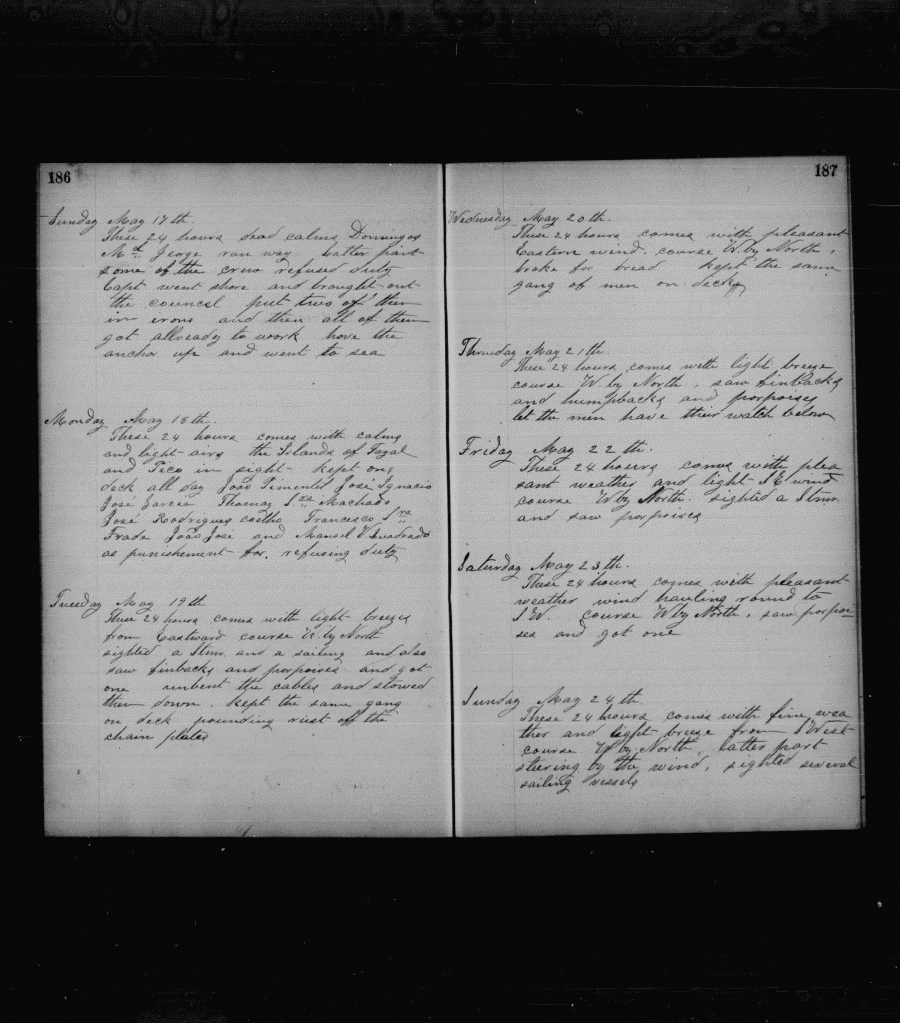 186
Sunday May 17th.
These 24 hours dead calms Domingos
Mt. George ran way Latter part
some of the crew refused duty
Capt went shore and brought out
the councel put two of them
in irons and then all of them
got allready to work hove the
anchor up and went to sea
Monday May 18th.
These 24 hours comes with calms
and light airs the Islands of Fayal
and Pico in sight kept on
deck all day Joao Pimentel José Ignacio
José Garcia Thomas Sra Machado
José Rodrigues coetho Francesco Sra
Frade João José and Manoel V Quadrado
as punishement for. refusing duty
Tuesday May 19th
These 24 hours comes with light breezes
from Eastward course W. by North
sighted a Stmr. and a sailing and also
saw finbacks and porpoises and got
one unbent the cables and stowed
them down. kept the same gang
on deck pounding rust off the
chain plates
187
Wednesday May 20th.
These 24 hours comes with pleasant
Eastern wind. course W. by North.
broke for bread kept the same
gang of men on deck
Thursday May 21th.
These 24 hours comes with light breeze
course W. by North. saw finbacks
and humpbacks and porpoises
let the men have their watch below
Friday May 22th.
These 24 hours comes with plea
sant weather and light SE wind
course W by North. sighted a Stmr.
and saw porpoises
Saturday May 23th.
These 24 hours comes with pleasant
weather wind hauling round to
SW. course W by North. saw porpoi-
ses and got one
Sunday May 24th.
These 24 hours comes with fine wea
ther and light breeze from SWest
course W by North latter part
steering by the wind. sighted several
sailing vessels